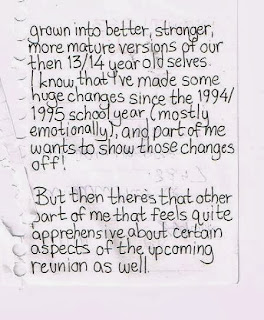 grown into better, stronger,
more mature versions of our
then 13/14 year old selves.
I know that I've made some
huge changes since the 1994/
1995 school year, (mostly
emotionally), and part of me
wants to show those changes
off!
But then there's that other
part of me that feels quite
apprehensive about certain
aspects of the upcoming
reunion as well.